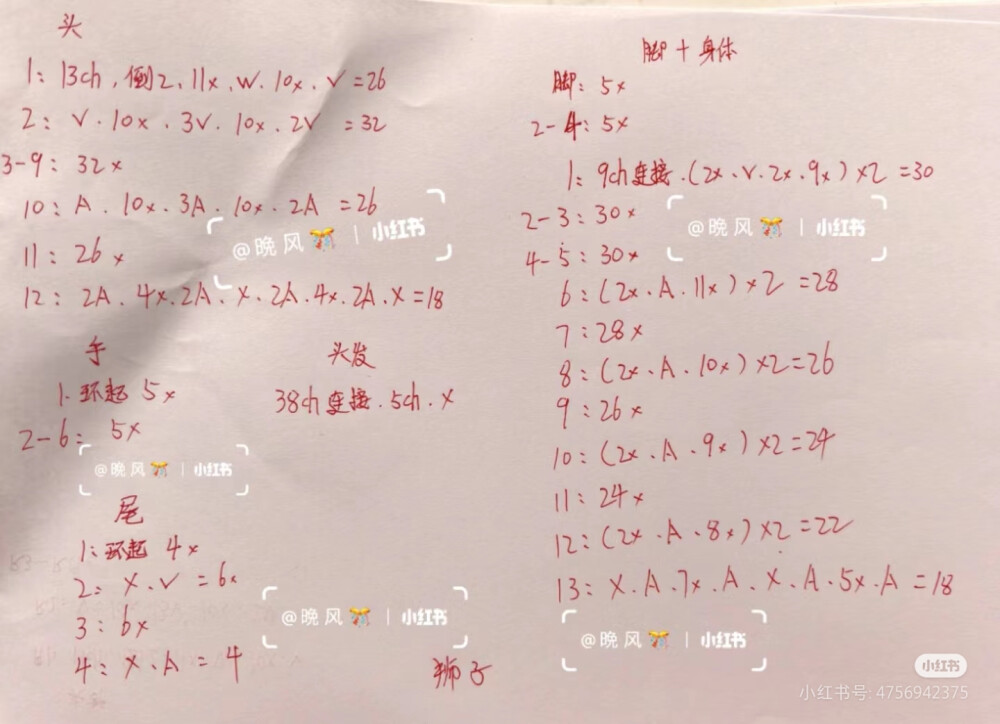 头
1: 13ch, 倒2、11x、W·10x、V=26
2: V·10x·3V·10x·2V =32
3-9: 32x
10: A·10x·3A·10x·2A =26
11: 26x
12: 2A·4x·2A·X·2A·4x·2A·X=18
手
1·环起 5x
2-6: 5x
头发
38ch连接·5ch·x
尾
1:环起 4x
2: X·V = 6x
3: 6x
4: X·A = 4
狮子
脚+身体
脚: 5x
2-4: 5x
1: 9ch连接·(2x·V·2x·9x)×2 =30
2-3: 30x
4-5: 30x
6: (2x·A·11x)×2 =28
7: 28x
8: (2x·A·10x)×2=26
9: 26x
10: (2x·A·9x)×2=24
11: 24x
12: (2x·A·8x)×2=22
13: X·A·7x·A·X·A·5x·A =18
@晚风 | 小红书
@晚风 | 小红书
@晚风 | 小红书
@晚风 | 小红书
@晚风 | 小红书
小红书
小红书号: 4756942375